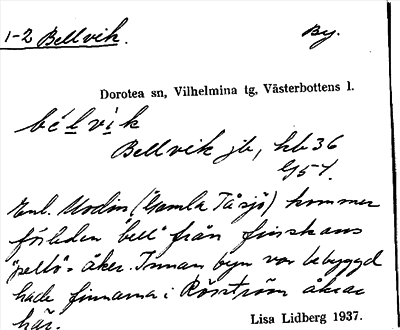 1-2 Bellvik. By.
Dorotea sn, Vilhelmina tg, Västerbottens l.
bélvik
Bellvik jb, hb 36
G 57.
Enl. Modin (Gamla Tåsjö) kommer
förleden "bell" från finskans
"pelto" = åker. Innan byn var bebyggd
hade finnarna i Rörström åkrar
här.
Lisa Lidberg 1937.